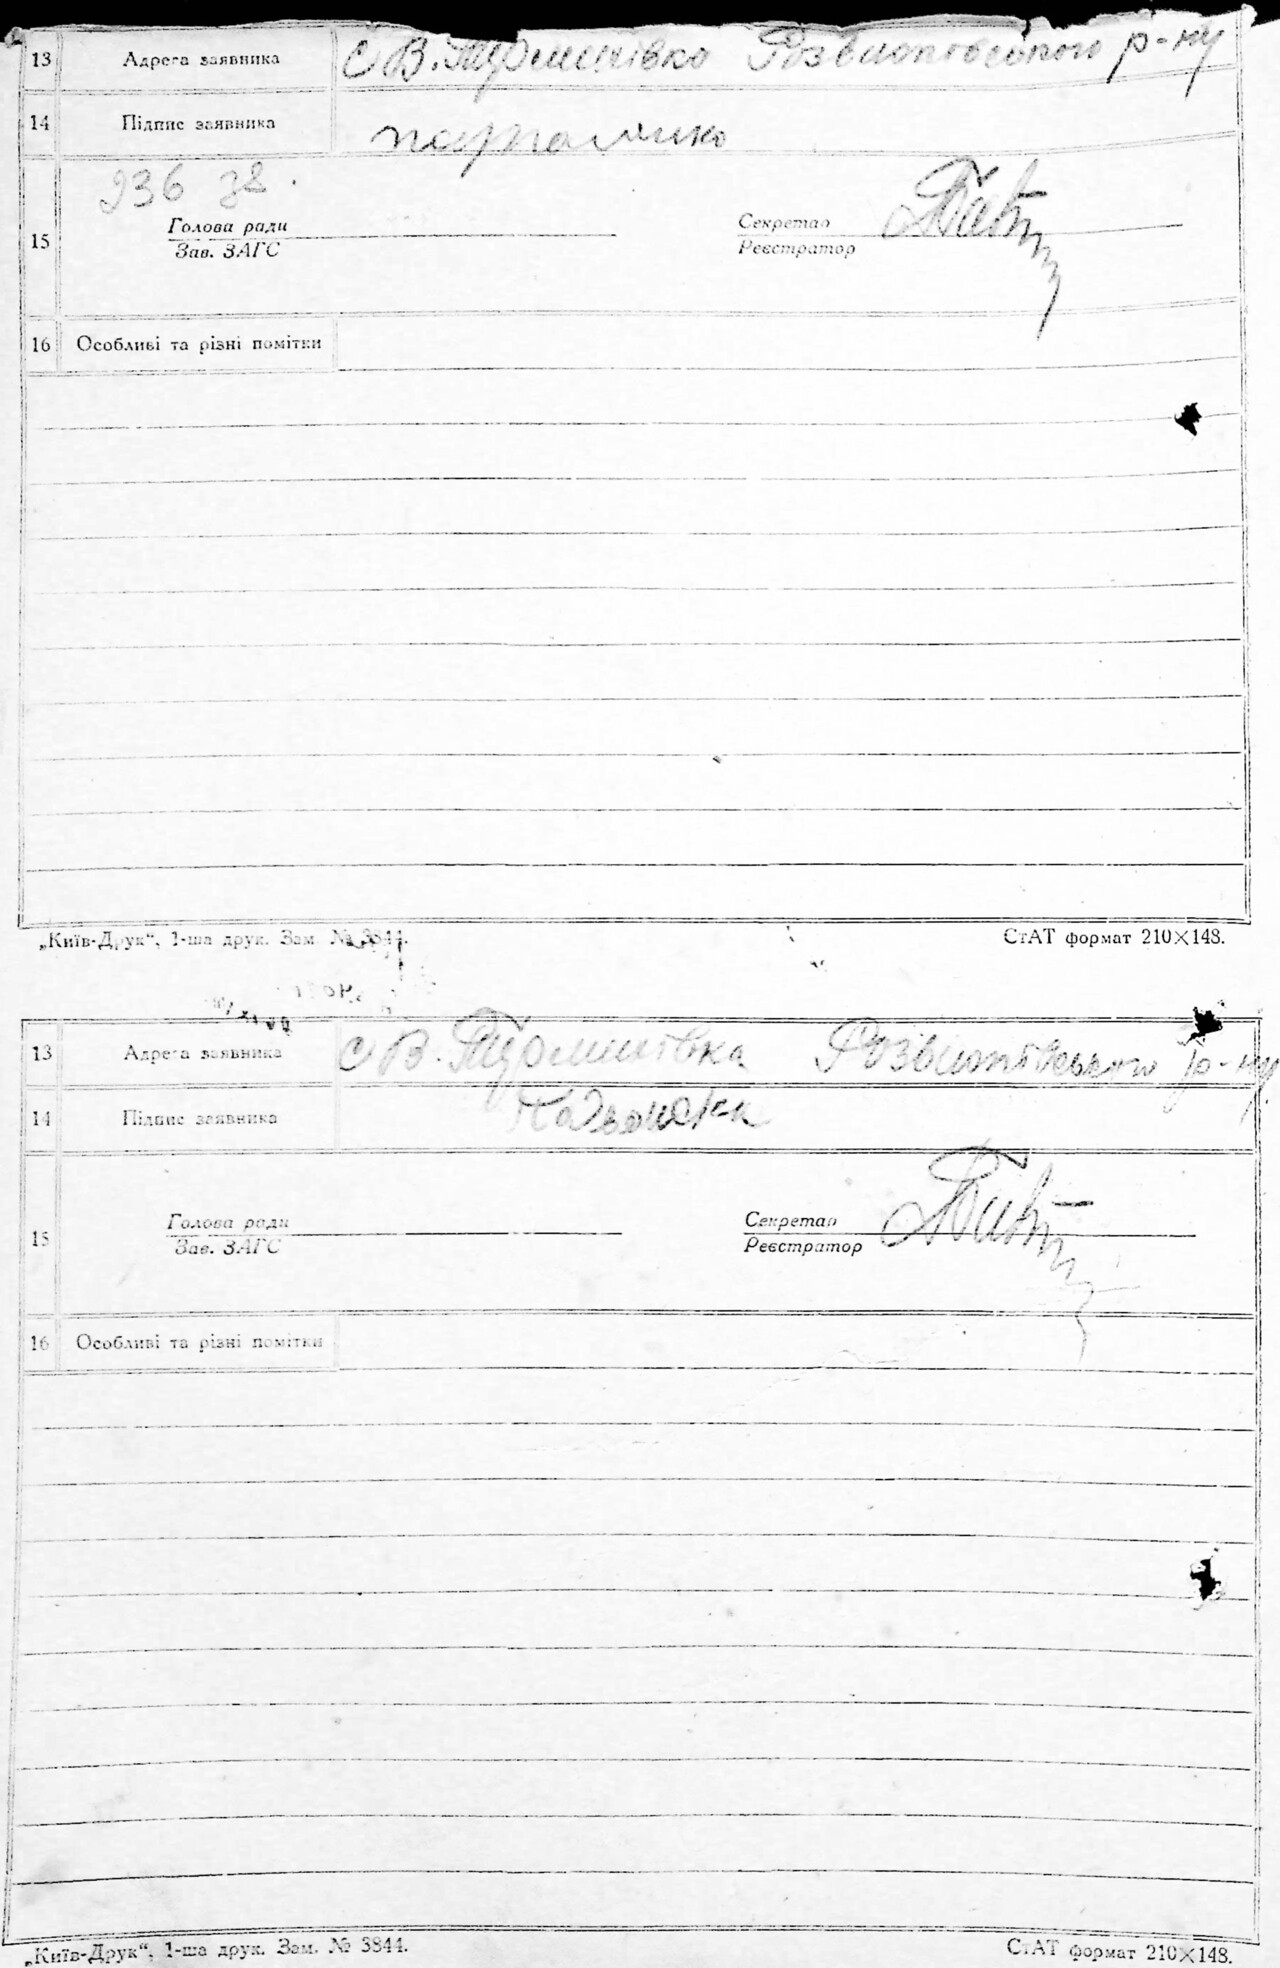 13 Адреса заявника С В. Турминівка Розважівського р-ну
14 Підпис заявника
936 32.
Голова ради Секретар
15
Зав. ЗАГС Реєстратор
16 Особливі та різні помітки
„Київ-Друк“, 1-ша друк. Зам. № 3844. СтАТ формат 210×148.
13 Адреса заявника С В. Турминівка Розважівського р-ну
14 Підпис заявника
Голова ради Секретар
15
Зав. ЗАГС Реєстратор
16 Особливі та різні помітки
„Київ-Друк“, 1-ша друк. Зам. № 3844. СтАТ формат 210×148.